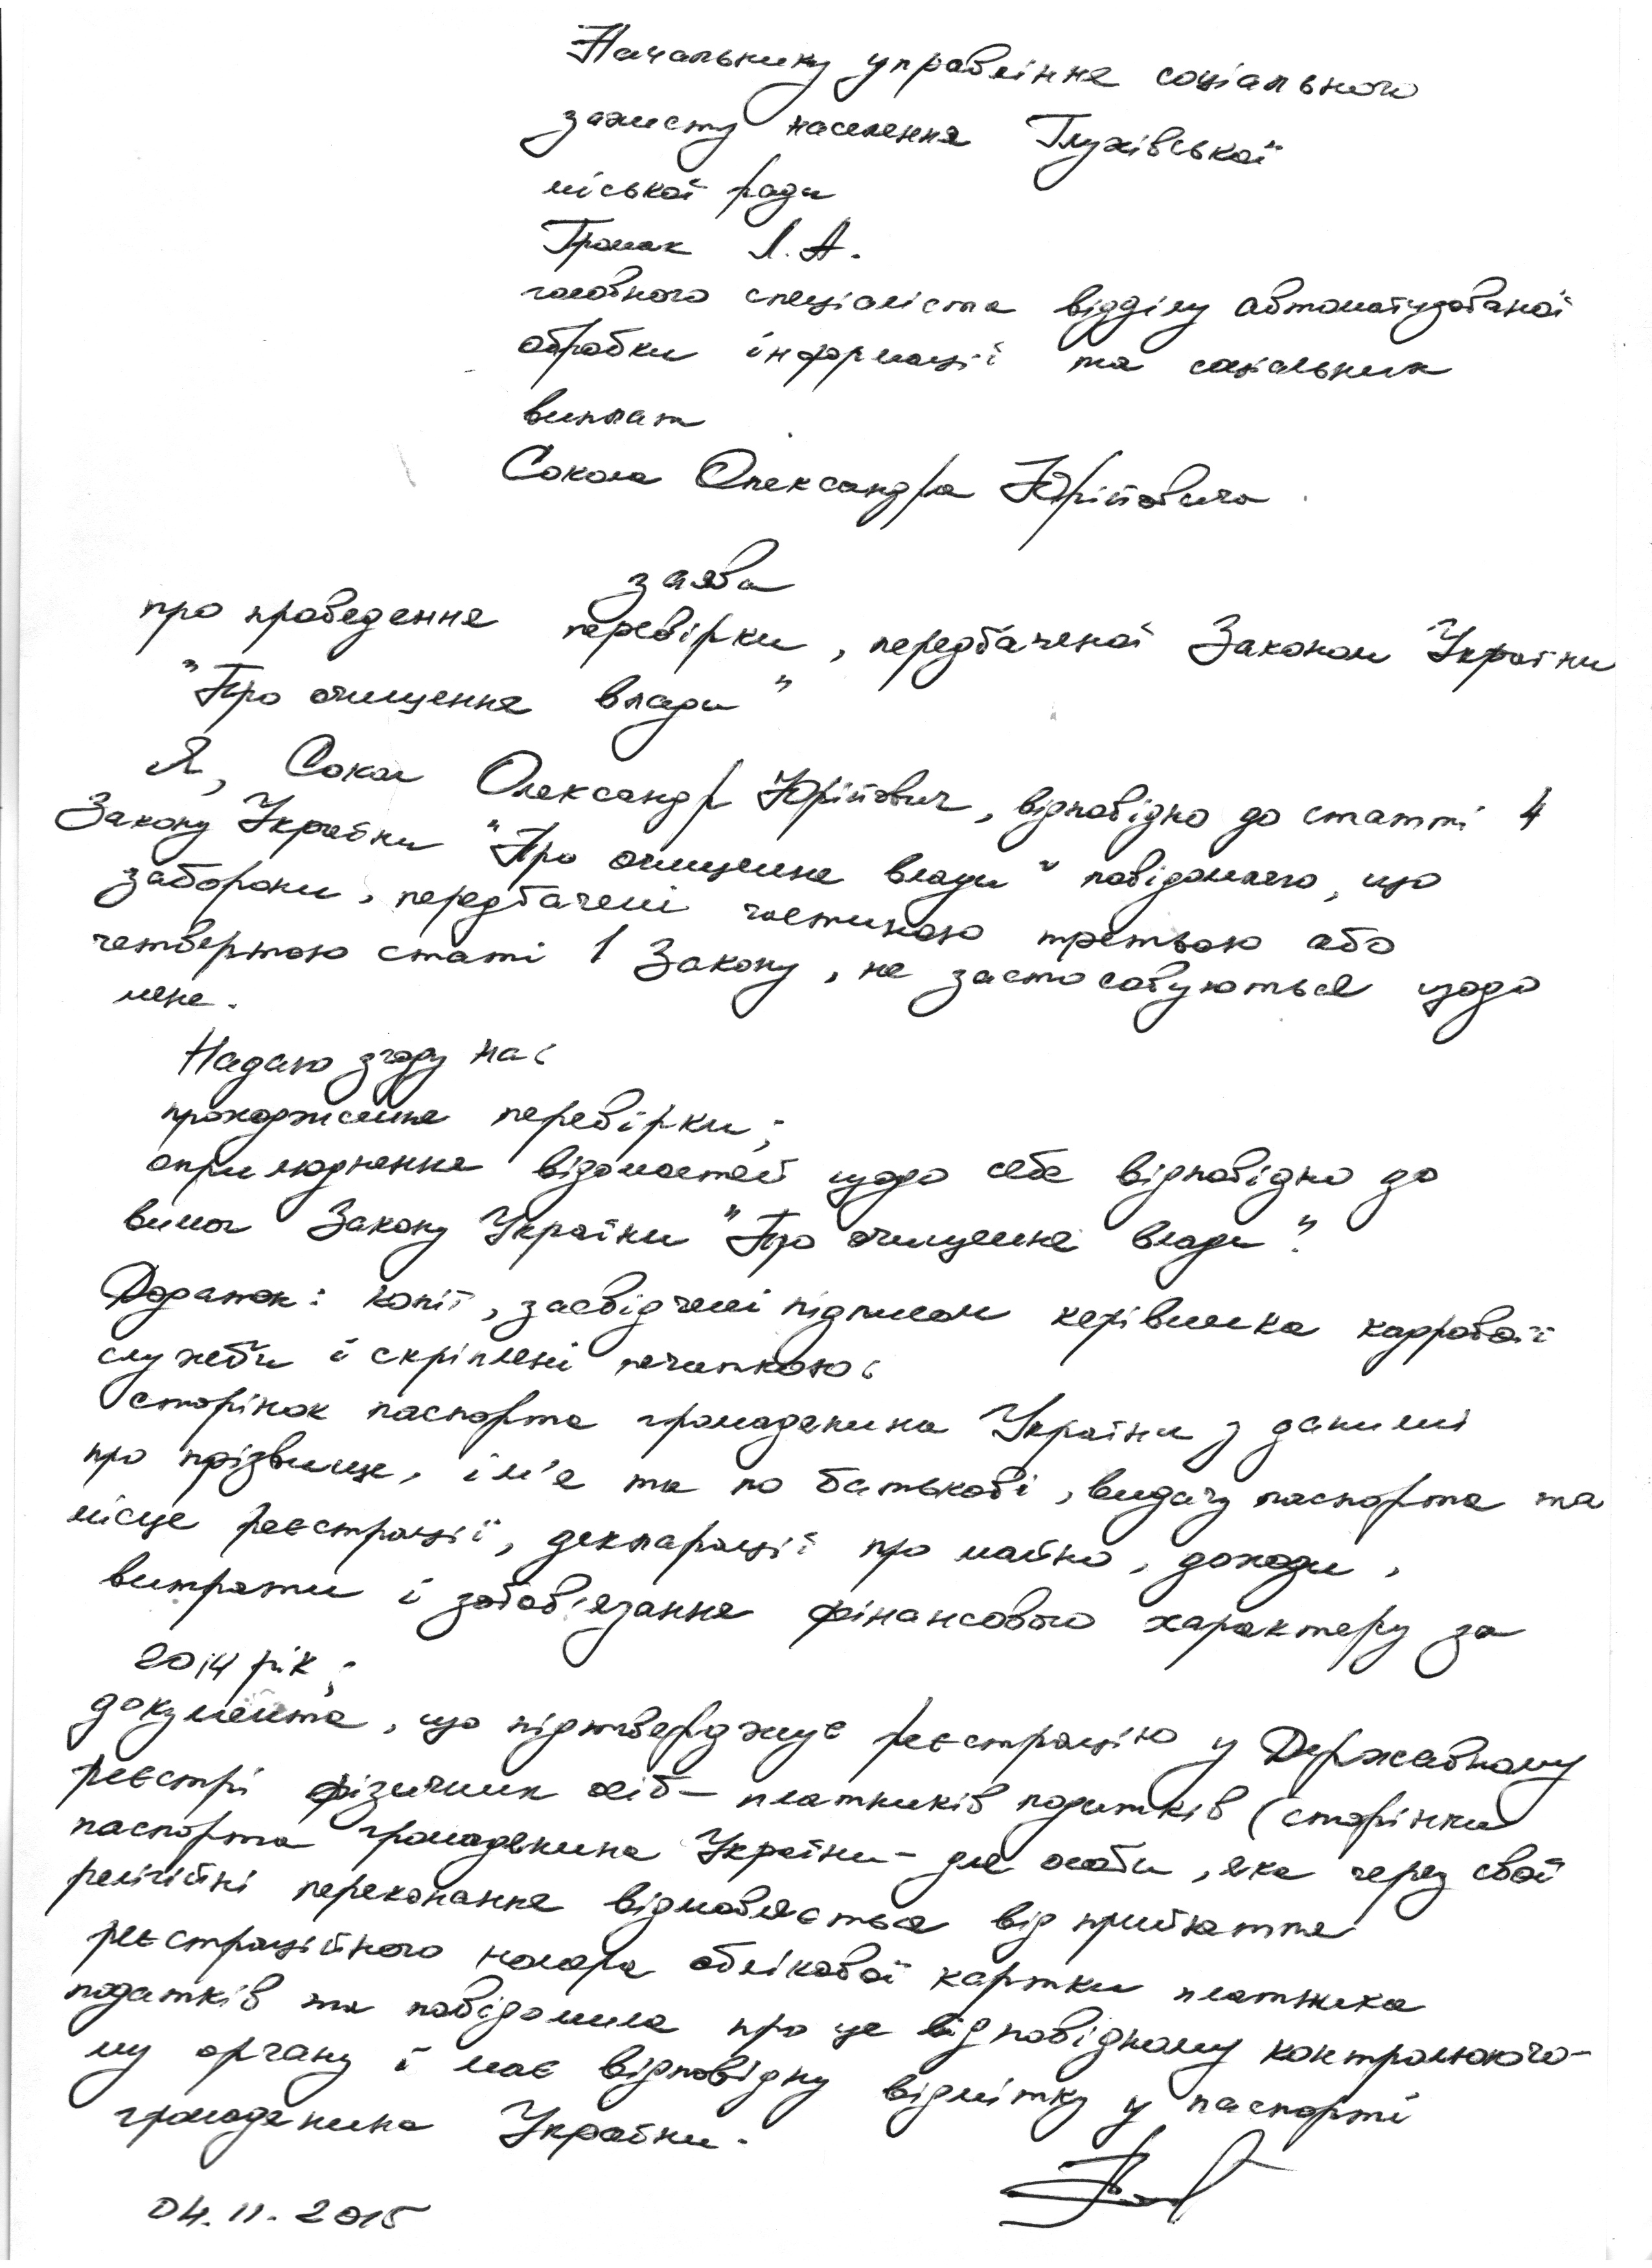 Начальнику управління соціального
захисту населення Глухівської
міської ради
Громак Л.А.
головного спеціаліста відділу автоматизованої
обробки інформації та соціальних
виплат
Сокола Олександра Юрійовича
заява
про проведення перевірки, передбаченої Законом України
"Про очищення влади"
Я, Сокол Олександр Юрійович, відповідно до статті 4
Закону України "Про очищення влади" повідомляю, що
заборони, передбачені частиною третьою або
четвертою статі 1 Закону, не застосовуються щодо
мене.
Надаю згоду на:
проходження перевірки;
оприлюднення відомостей щодо себе відповідно до
вимог Закону України "Про очищення влади".
Додаток: копії, засвідчені підписом керівника кадрової
служби і скріплені печаткою:
сторінок паспорта громадянина України з даними
про прізвище, ім'я та по батькові, видачу паспорта та
місце реєстрації, декларації про майно, доходи,
витрати і зобов'язання фінансового характеру за
2014 рік;
документа, що підтверджує реєстрацію у Державному
реєстрі фізичних осіб - платників податків (сторінки
паспорта громадянина України - для особи, яка через свої
релігійні переконання відмовляється від прийняття
реєстраційного номера облікової картки платника
податків та повідомила про це відповідному контролюючо-
му органу і має відповідну відмітку у паспорті
громадянина України.
04.11.2015